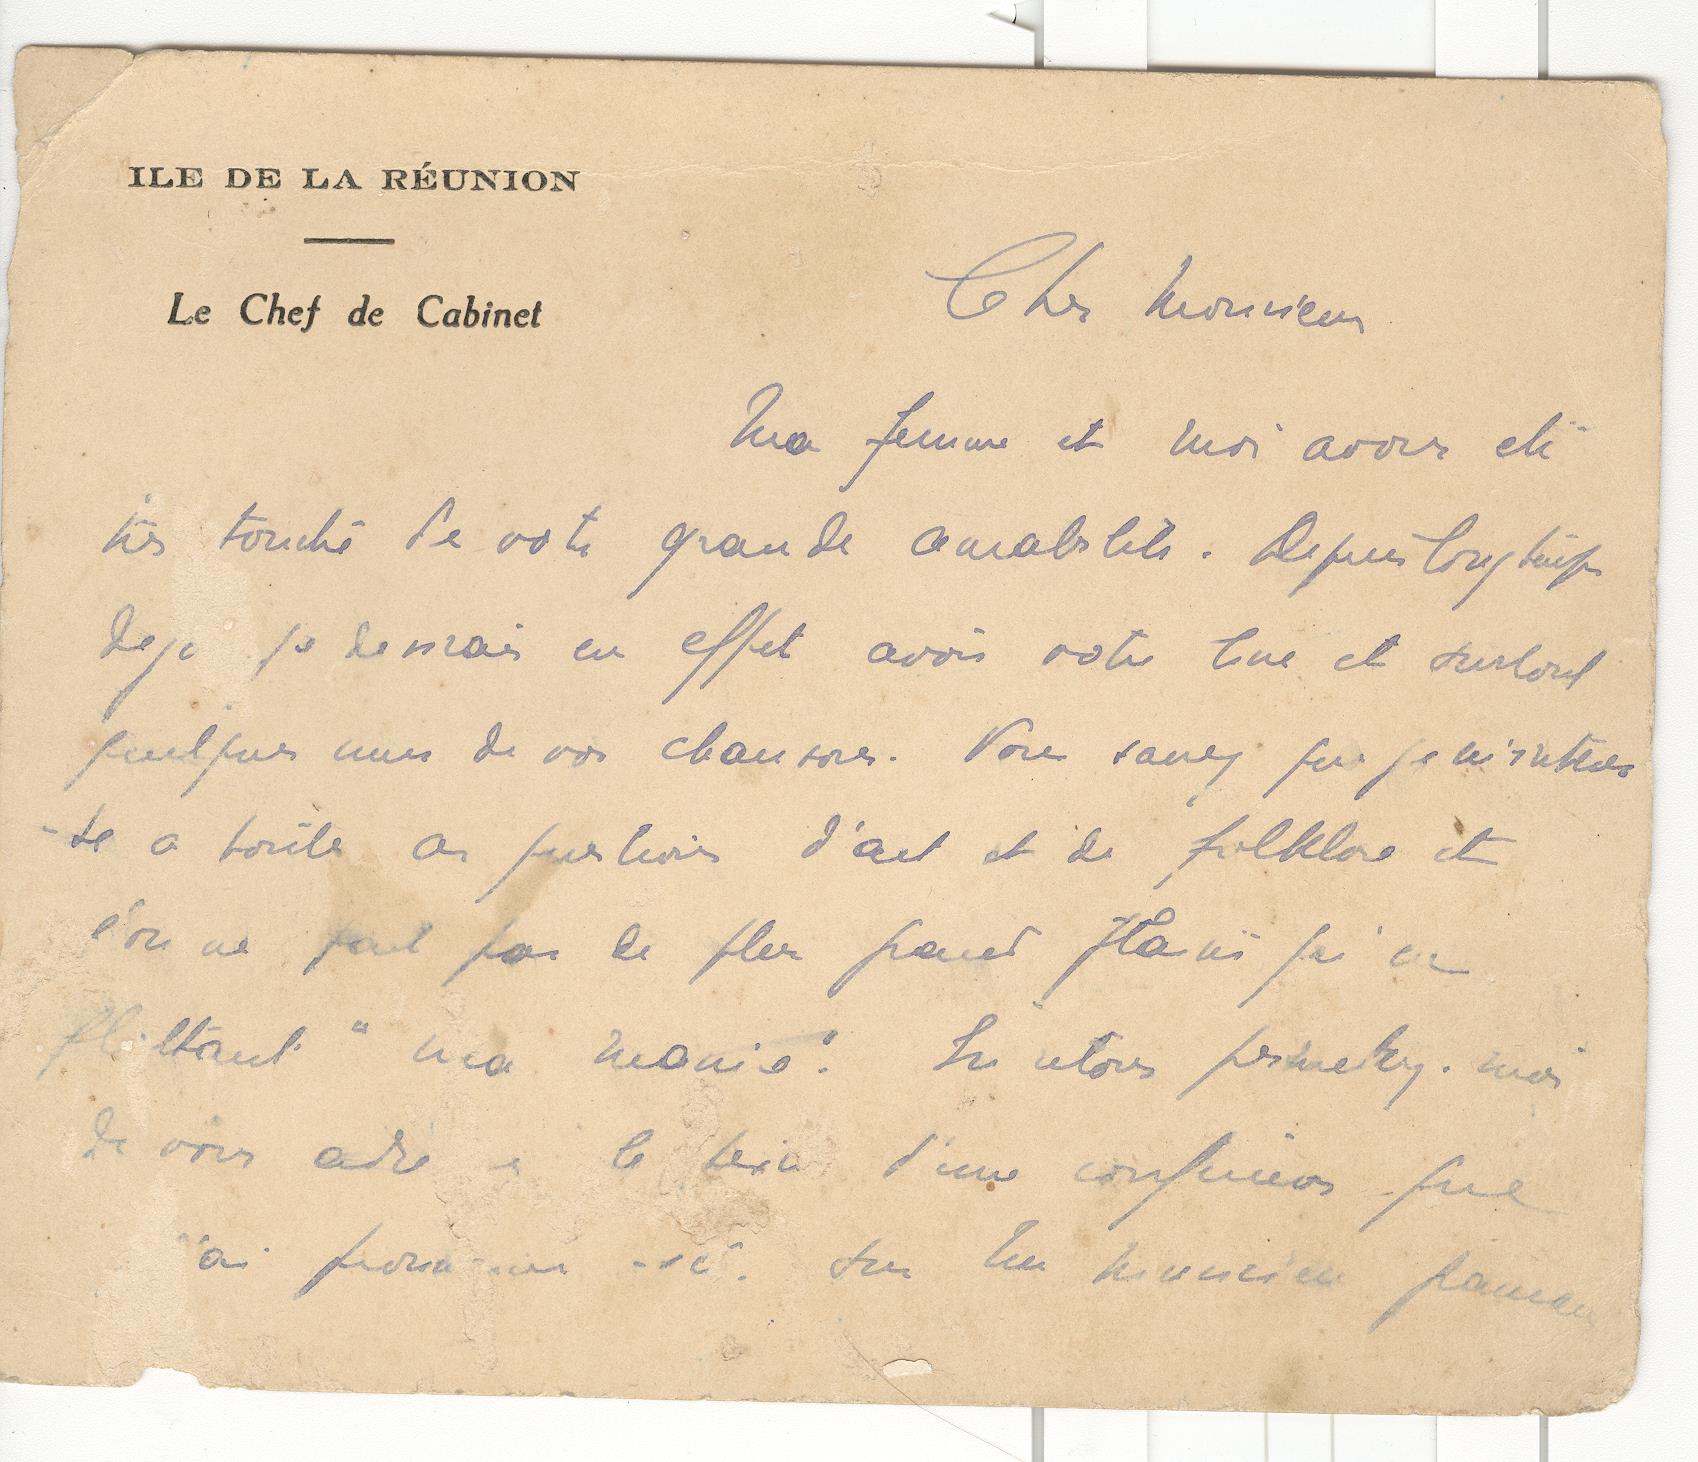 ILE DE LA RÉUNION
Le Chef de Cabinet
Cher Monsieur
Ma femme et moi avons été
très touché de votre grande amabilité. Depuis longtemps
déjà je désirais en effet avoir votre livre et surtout
quelques unes de vos chansons. Vous savez que je m'intéres
-se à toutes ces questions d'art et de folklore et
l'on ne peut pas de plus grand plaisir qu'en
flattant "ma manie". En retour permettez-moi
de vous adre le texte d'une conférence que
j'ai sur un musicien